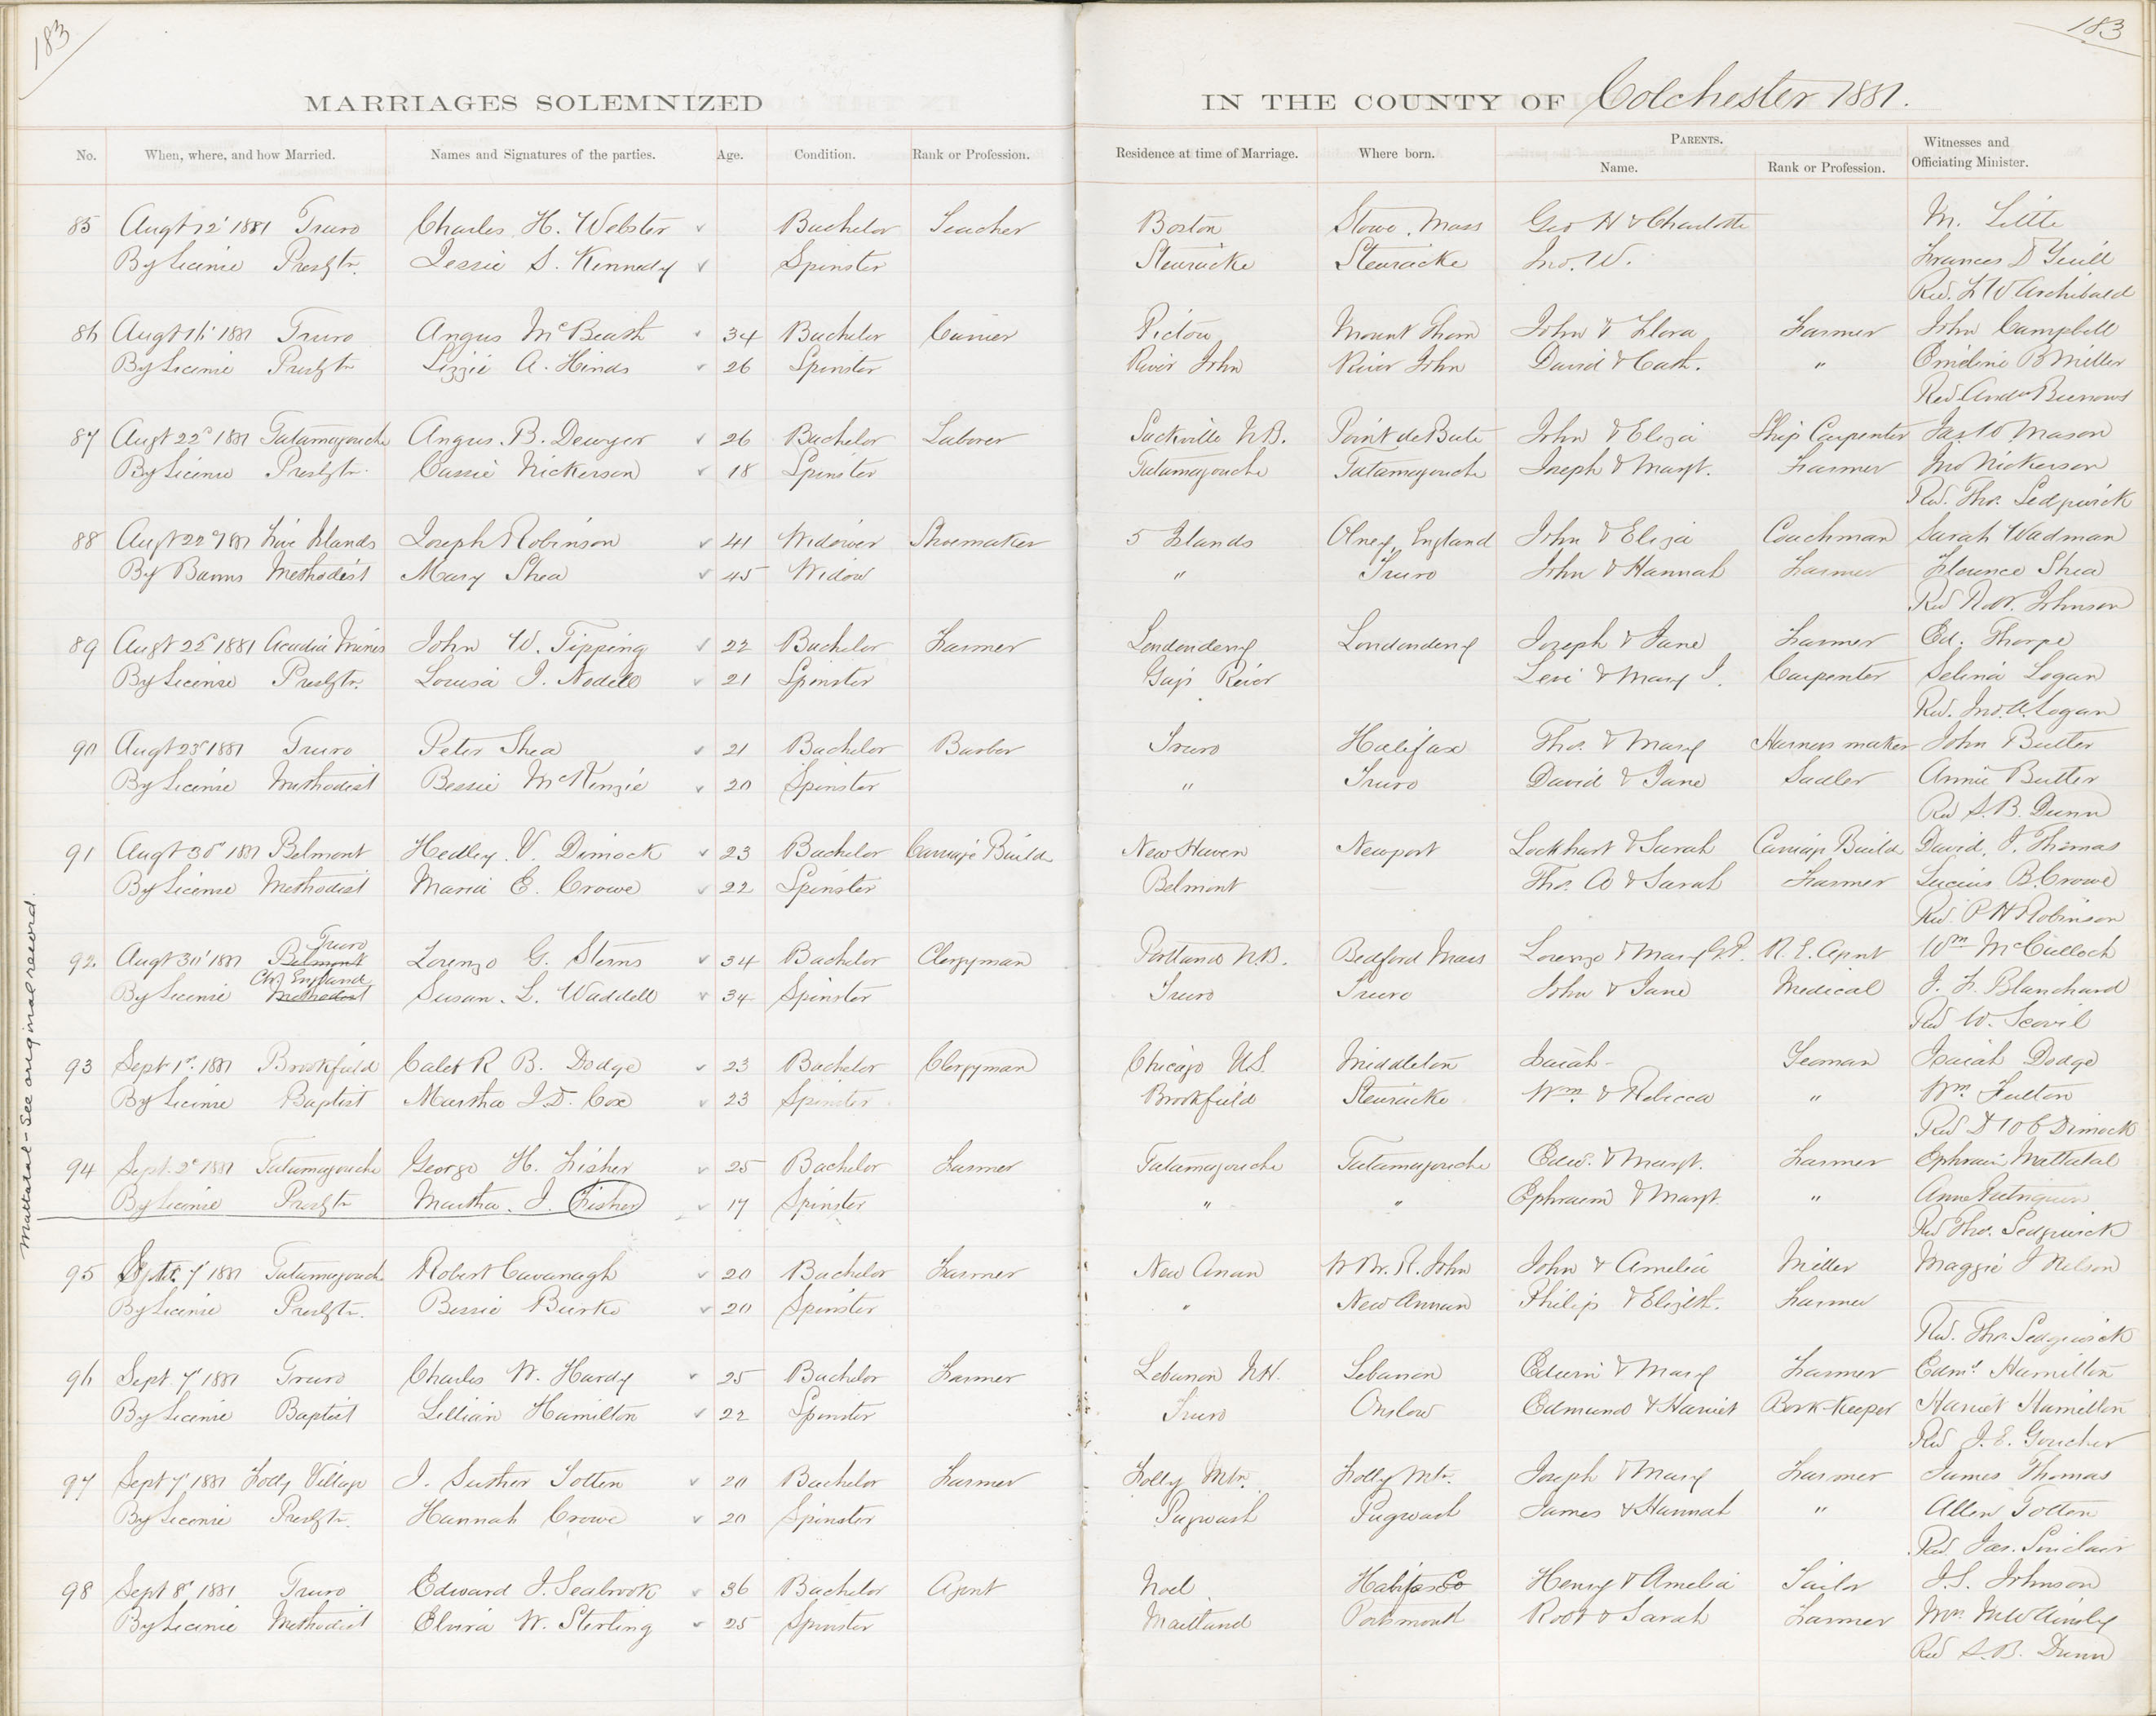 183
183
MARRIAGES SOLEMNIZED IN THE COUNTY OF Colchester 1881.
No. When, where, and how Married. Names and Signatures of the parties. Age. Condition. Rank or Profession. Residence at time of Marriage. Where born. PARENTS. Name. Rank or Profession. Witnesses and Officiating Minister.
85 Augt 12' 1881 Truro Charles H. Webster Bachelor Teacher Boston Stowe, Mass Geo H & Charlotte M. Little
By License Presbytn. Jessie S. Kennedy Spinster Stewiacke Stewiacke Jno. W. Frances D Yuill
Rev. F W Archibald
86 Augt 16' 1881 Truro Angus McBeath 34 Bachelor Currier Pictou Mount Thom John & Flora Farmer John Campbell
By License Presbytn Lizzie A. Hinds 26 Spinster River John River John David & Cath. " Emeline B Miller
Rev Andw Burrows
87 Augt 22d 1881 Tatamagouche Angus. B. Dewyer 26 Bachelor Laborer Sackville N.B. Point de Bute John & Eliza Ship Carpenter Jas W Mason
By License Presbytn. Cassie Nickerson 18 Spinster Tatamagouche Tatamagouche Joseph & Margt. Farmer Jno Nickerson
Rev. Tho. Sedgwick
88 Augt 22d 1881 Five Islands Joseph Robinson 41 Widower Shoemaker 5 Islands Olney, England John & Eliza Coachman Sarah Wadman
By Banns Methodist Mary Shea 45 Widow " Truro John & Hannah Farmer Florence Shea
Rev Robt. Johnson
89 Augt 22d 1881 Acadia Mines John W. Tipping 22 Bachelor Farmer Londonderry Londonderry Joseph & Jane Farmer Ed. Thorpe
By License Presbytn. Louisa J. Nodell 21 Spinster Gays River Levi & Mary J. Carpenter Selina Logan
Rev. Jno. A. Logan
90 Augt 23d 1881 Truro Peter Shea 21 Bachelor Barber Truro Halifax Tho. & Mary Harness maker John Butler
By License Methodist Bessie McKenzie 20 Spinster " Truro David & Jane Sadler Annie Butler
Rev S. B. Dunn
91 Augt 30' 1881 Belmont Hedley. V. Dimock 23 Bachelor Carriage Build New Haven Newport Lockhart & Sarah Carriage Build David. J. Thomas
By License Methodist Maria E. Crowe 22 Spinster Belmont Tho. A & Sarah Farmer Lucius B. Crowe
Rev. P H Robinson
Truro
92 Augt 30' 1881 Belmont Lorenzo G. Sterns 34 Bachelor Clergyman Portland N.B. Bedford Mass Lorenzo & Mary R. E. Agent Wm McCulloch
Ch. England
By License Methodist Susan. L. Waddell 34 Spinster Truro Truro John & Jane Medical J. F. Blanchard
Rev W. Scovil
93 Sept 1st. 1881 Brookfield Caleb R B. Dodge 23 Bachelor Clergyman Chicago U.S. Middleton Isaiah Yeoman Isaiah Dodge
By License Baptist Martha J. D. Cox 23 Spinster Brookfield Stewiacke Wm. & Rebecca " Wm. Fulton
Rev D W C Dimock
94 Sept. 2d 1881 Tatamagouche George H. Fisher 25 Bachelor Farmer Tatamagouche Tatamagouche Edw. & Margt. Farmer Ephraim Mattatal
By License Presbytn Martha. J. Fisher 17 Spinster " " Ephraim & Margt. " Anne Patriquin
Rev Tho. Sedgwick
Mattatal - See original record.
95 Septr. 7' 1881 Tatamagouche Robert Cavanagh 20 Bachelor Farmer New Anan W. Br. R. John John & Amelia Miller Maggie J Nelson
By License Presbytn. Bessie Burke 20 Spinster " New Annan Philip & Elizbth. Farmer
Rev. Tho. Sedgwick
96 Sept 7' 1881 Truro Charles W. Hardy 25 Bachelor Farmer Lebanon N.H. Lebanon Edwin & Mary Farmer Edmd Hamilton
By License Baptist Lillian Hamilton 22 Spinster Truro Onslow Edmund & Harriet Book-Keeper Harriet Hamilton
Rev J. E. Goucher
97 Sept 7' 1881 Folly Village J. Suther Totten 20 Bachelor Farmer Folly Mtn. Folly Mtn. Joseph & Mary Farmer James Thomas
By License Presbytn. Hannah Crowe 20 Spinster Pugwash Pugwash James & Hannah " Allen Totten
Rev. Jas. Sinclair
98 Sept 8' 1881 Truro Edward J. Seabrook 36 Bachelor Agent Noel Halifax Co Henry & Amelia Sailor J. S. Johnson
By License Methodist Elvira W. Sterling 25 Spinster Maitland Portsmouth Robt & Sarah Farmer
Rev S. B. Dunn